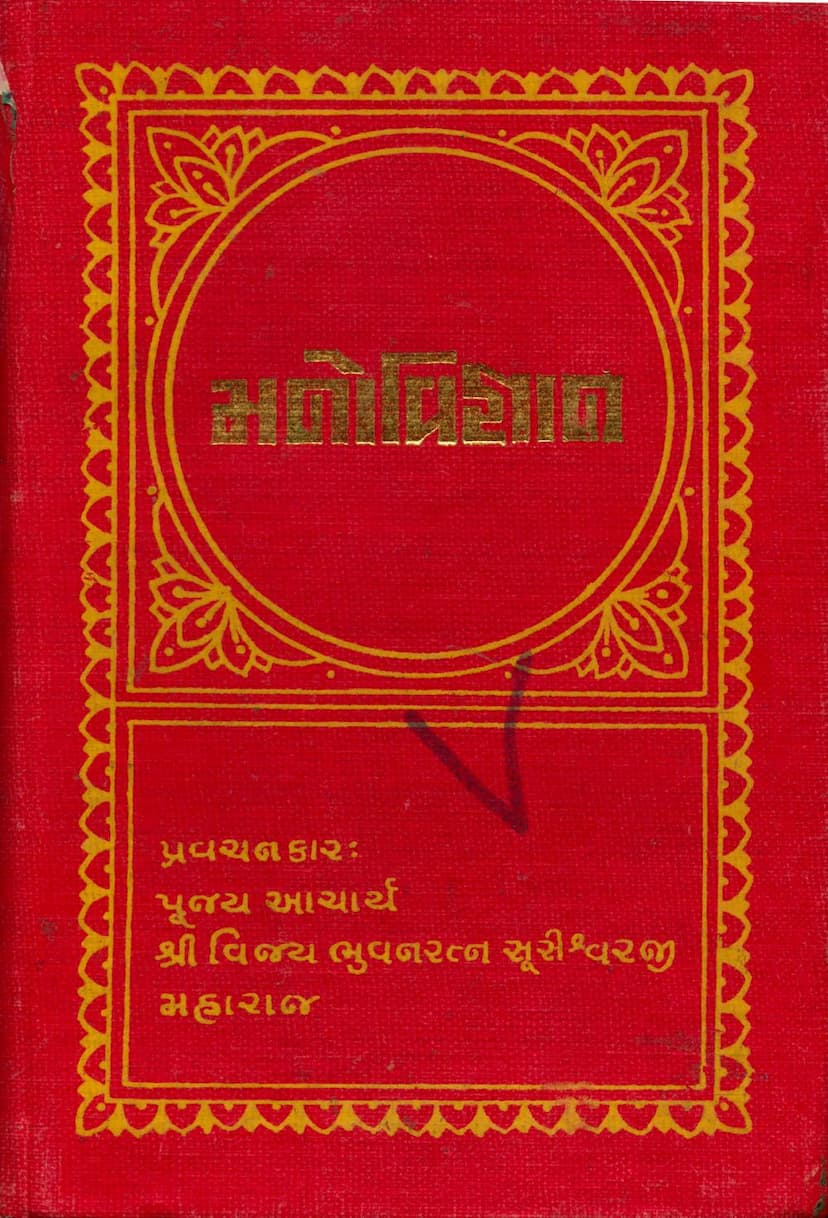 મનોવિજ્ઞાન
પ્રવચનકારઃ
પૂજ્ય આચાર્ય
શ્રી વિજય ભુવનરત્ન સૂરીશ્વરજી
મહારાજ